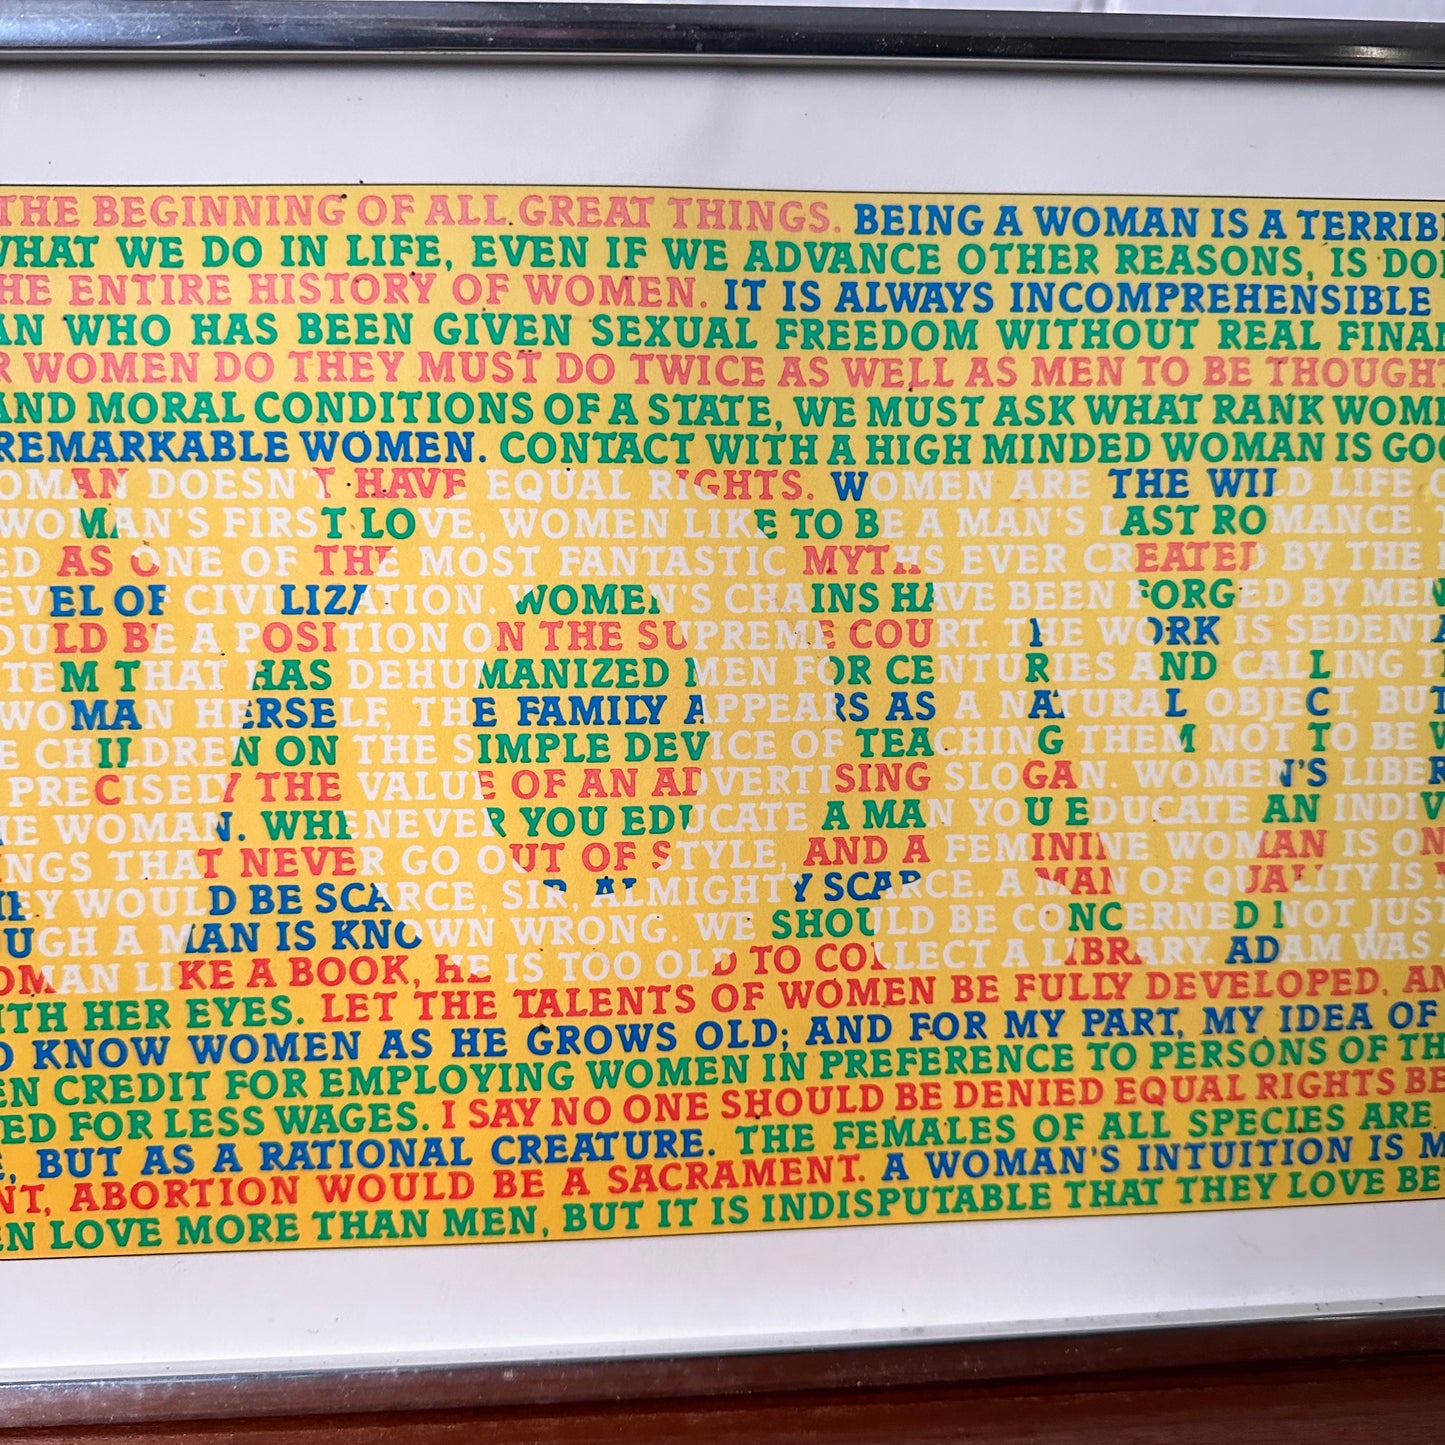 THE BEGINNING OF ALL GREAT THINGS. BEING A WOMAN IS A
WHAT WE DO IN LIFE, EVEN IF WE ADVANCE OTHER REASONS, IS
THE ENTIRE HISTORY OF WOMEN. IT IS ALWAYS INCOMPREHENSIBLE
WHO HAS BEEN GIVEN SEXUAL FREEDOM WITHOUT REAL
WOMEN DO THEY MUST DO TWICE AS WELL AS MEN TO BE THOUGHT
AND MORAL CONDITIONS OF A STATE, WE MUST ASK WHAT RANK
REMARKABLE WOMEN. CONTACT WITH A HIGH MINDED WOMAN IS
DOESN'T HAVE EQUAL RIGHTS. WOMEN ARE THE WILD LIFE
WOMAN'S FIRST LOVE, WOMEN LIKE TO BE A MAN'S LAST ROMANCE.
AS ONE OF THE MOST FANTASTIC MYTHS EVER CREATED BY THE
OF CIVILIZATION. WOMEN'S CHAINS HAVE BEEN FORGED BY MEN
BE A POSITION ON THE SUPREME COURT. THE WORK IS
THAT HAS DEHUMANIZED MEN FOR CENTURIES AND CALLING
WOMAN HERSELF, THE FAMILY APPEARS AS A NATURAL OBJECT, BUT
CHILDREN ON THE SIMPLE DEVICE OF TEACHING THEM NOT TO BE
PRECISELY THE VALUE OF AN ADVERTISING SLOGAN. WOMEN'S
WOMAN. WHENEVER YOU EDUCATE A MAN YOU EDUCATE AN
THAT NEVER GO OUT OF STYLE, AND A FEMININE WOMAN IS
THEY WOULD BE SCARCE, SIR, ALMIGHTY SCARCE. A MAN OF QUALITY IS
A MAN IS KNOWN WRONG. WE SHOULD BE CONCERNED NOT JUST
WOMAN LIKE A BOOK, HE IS TOO OLD TO COLLECT A LIBRARY. ADAM WAS
WITH HER EYES. LET THE TALENTS OF WOMEN BE FULLY DEVELOPED,
KNOW WOMEN AS HE GROWS OLD; AND FOR MY PART, MY IDEA OF
CREDIT FOR EMPLOYING WOMEN IN PREFERENCE TO PERSONS OF
FOR LESS WAGES. I SAY NO ONE SHOULD BE DENIED EQUAL RIGHTS
BUT AS A RATIONAL CREATURE. THE FEMALES OF ALL SPECIES ARE
ABORTION WOULD BE A SACRAMENT. A WOMAN'S INTUITION IS
LOVE MORE THAN MEN, BUT IT IS INDISPUTABLE THAT THEY LOVE